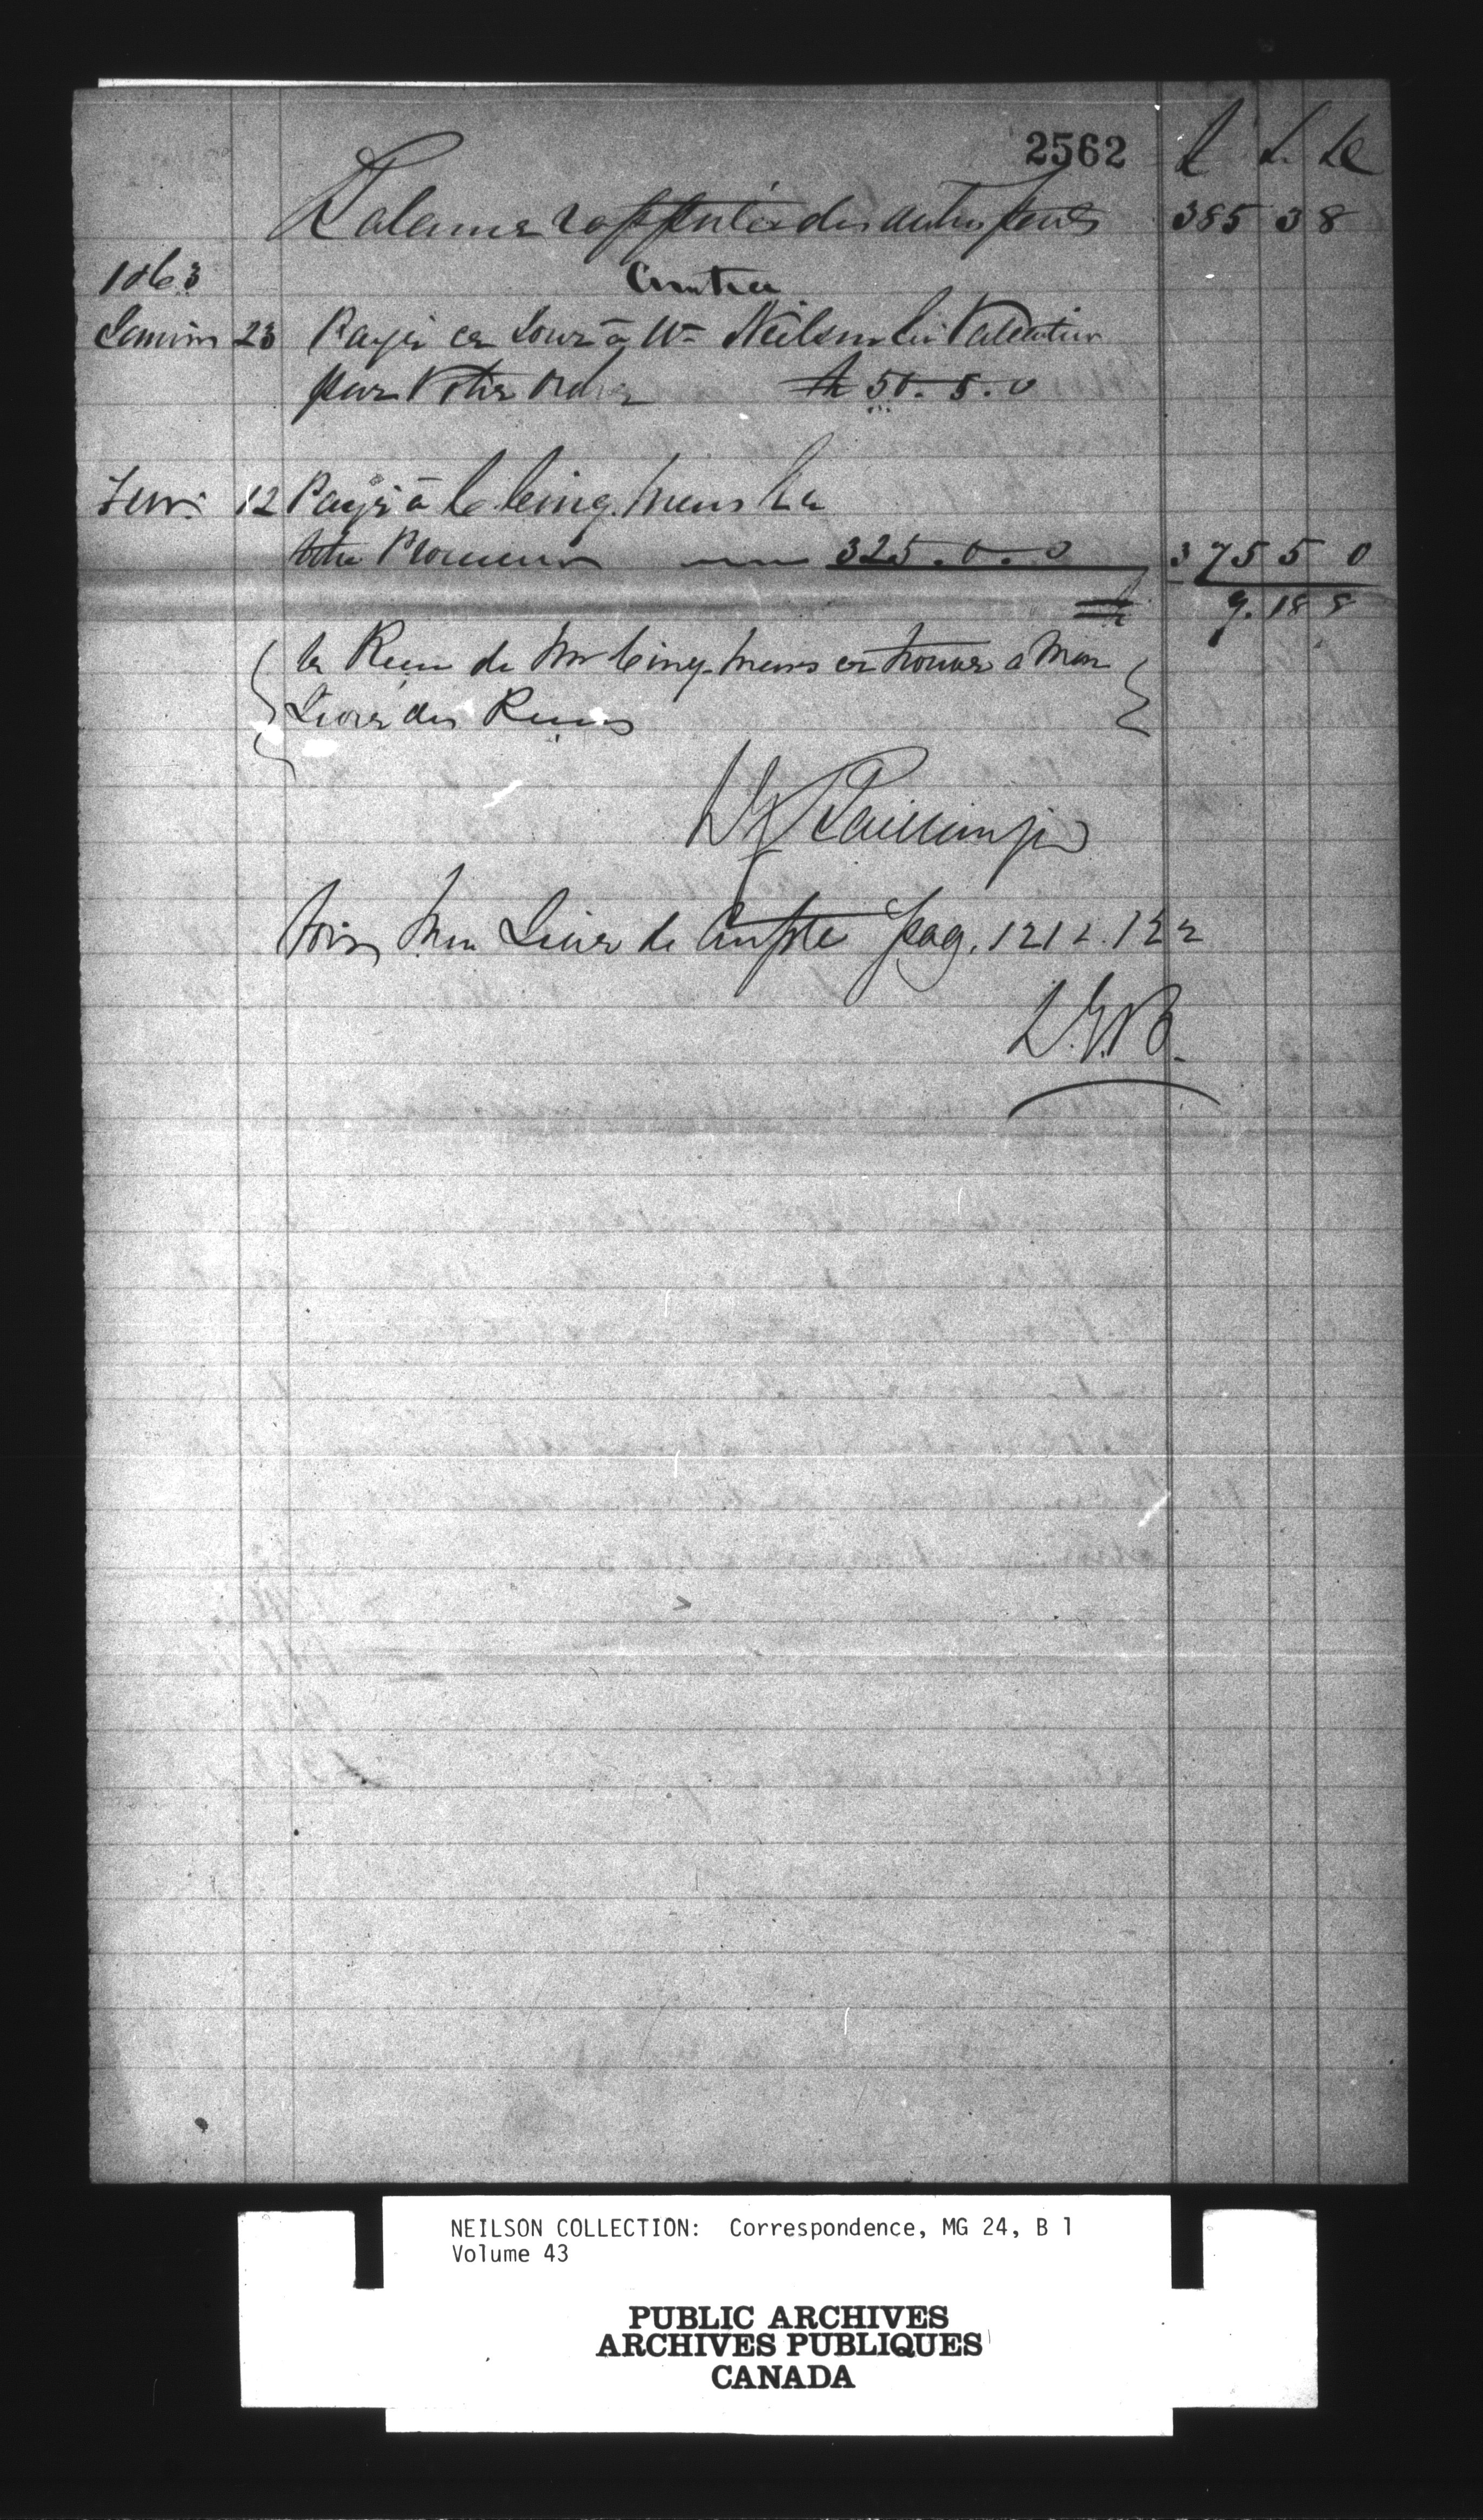 2562
£ S. D
Balance rapportée des autres parts 385 3 8
1863
Contra
Janvier 23 Payé ce Jour à Wm Neilson de Valcartier
par Votre Ordre £ 50. 5. 0
Fevr. 12 Payé à
votre Procureur 325. 0. 0 375 5 0
£ 9. 18 8
Le Recu de Mr Cinq-Mars ce trouve a Mon
Livre des Recus
voir Mon Livre de Compte pag. 121 & 122
NEILSON COLLECTION: Correspondence, MG 24, B 1
Volume 43
PUBLIC ARCHIVES
ARCHIVES PUBLIQUES
CANADA